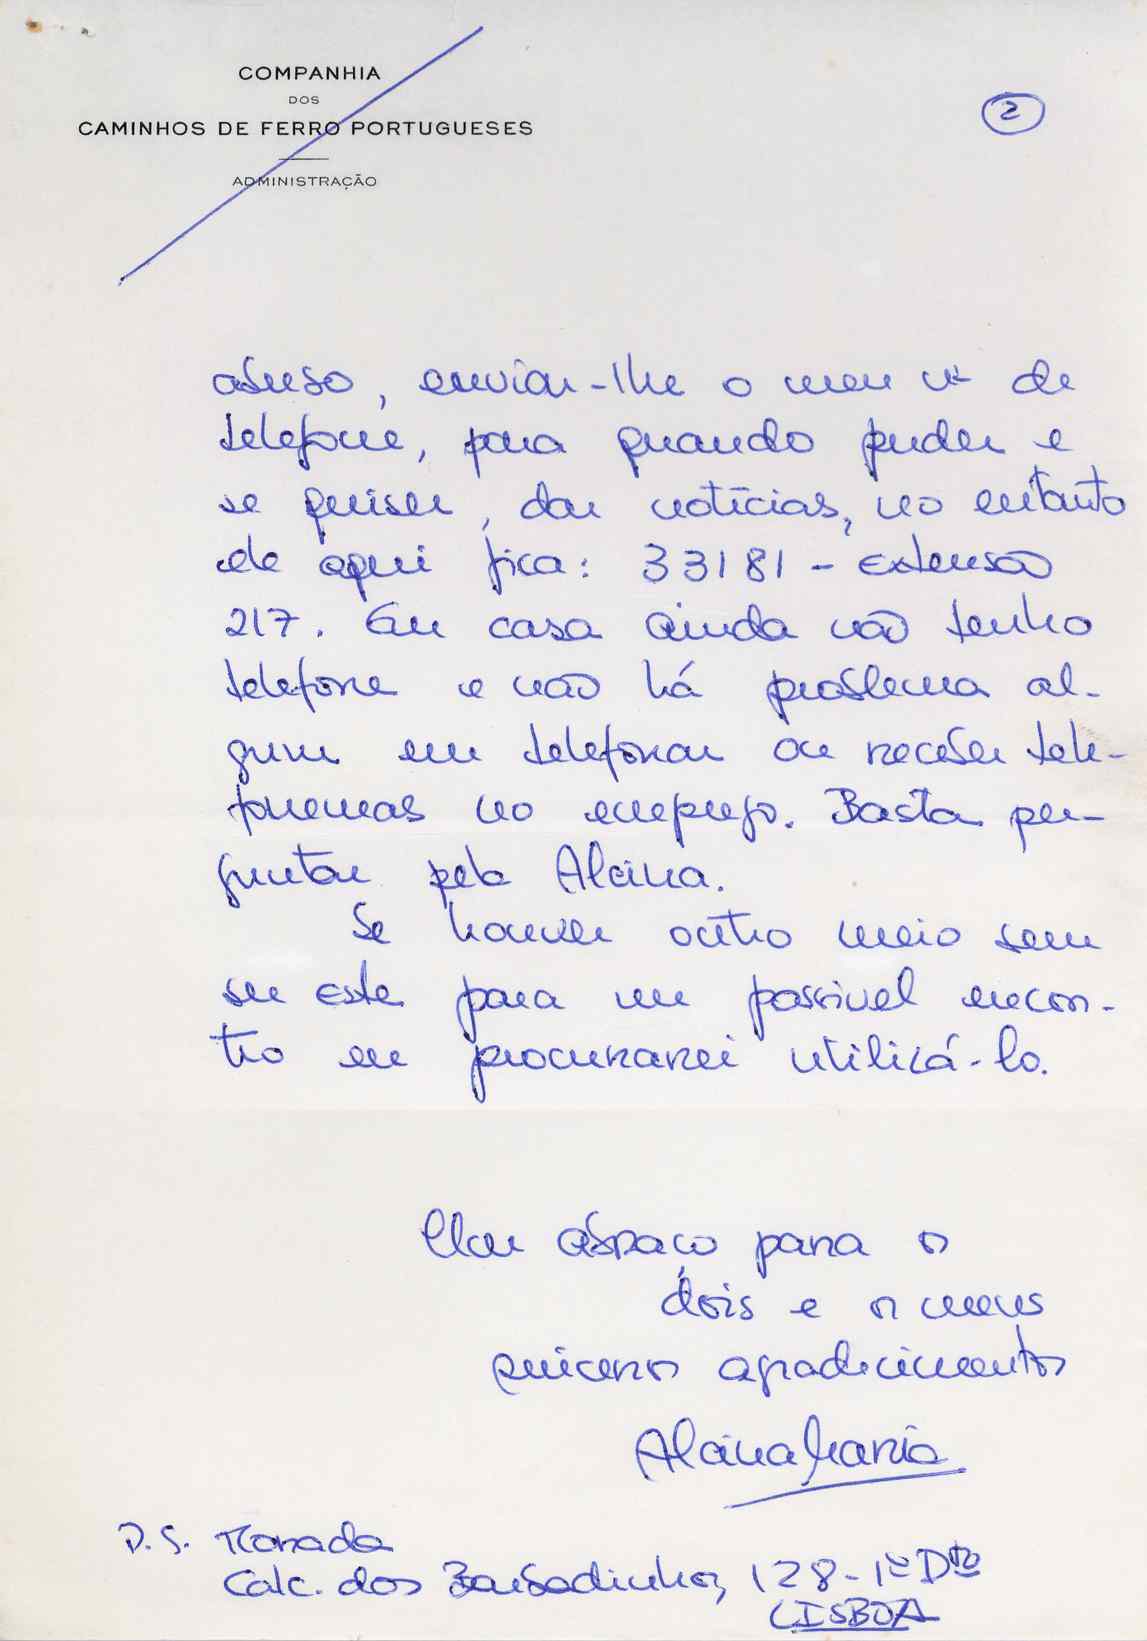 COMPANHIA
DOS
CAMINHOS DE FERRO PORTUGUESES
ADMINISTRAÇÃO
2
abuso, enviar-lhe o meu nº de
telefone, para quando puder e
se quiser, dar notícias, no entanto
ele aqui fica: 33181 - Extensão
217. Em casa ainda não tenho
telefone e não há problema al-
gum em telefonar ou receber tele-
fonemas no emprego. Basta per-
guntar pela Alcina.
Se houver outro meio sem
ser este para um possivel encon-
tro eu procurarei utilizá-lo.
Um abraço para os
dois e os meus
sinceros agradecimentos
Alcina Maria
P.S. Morada
Calc. dos Barbadinhos, 128-1º Dto
LISBOA